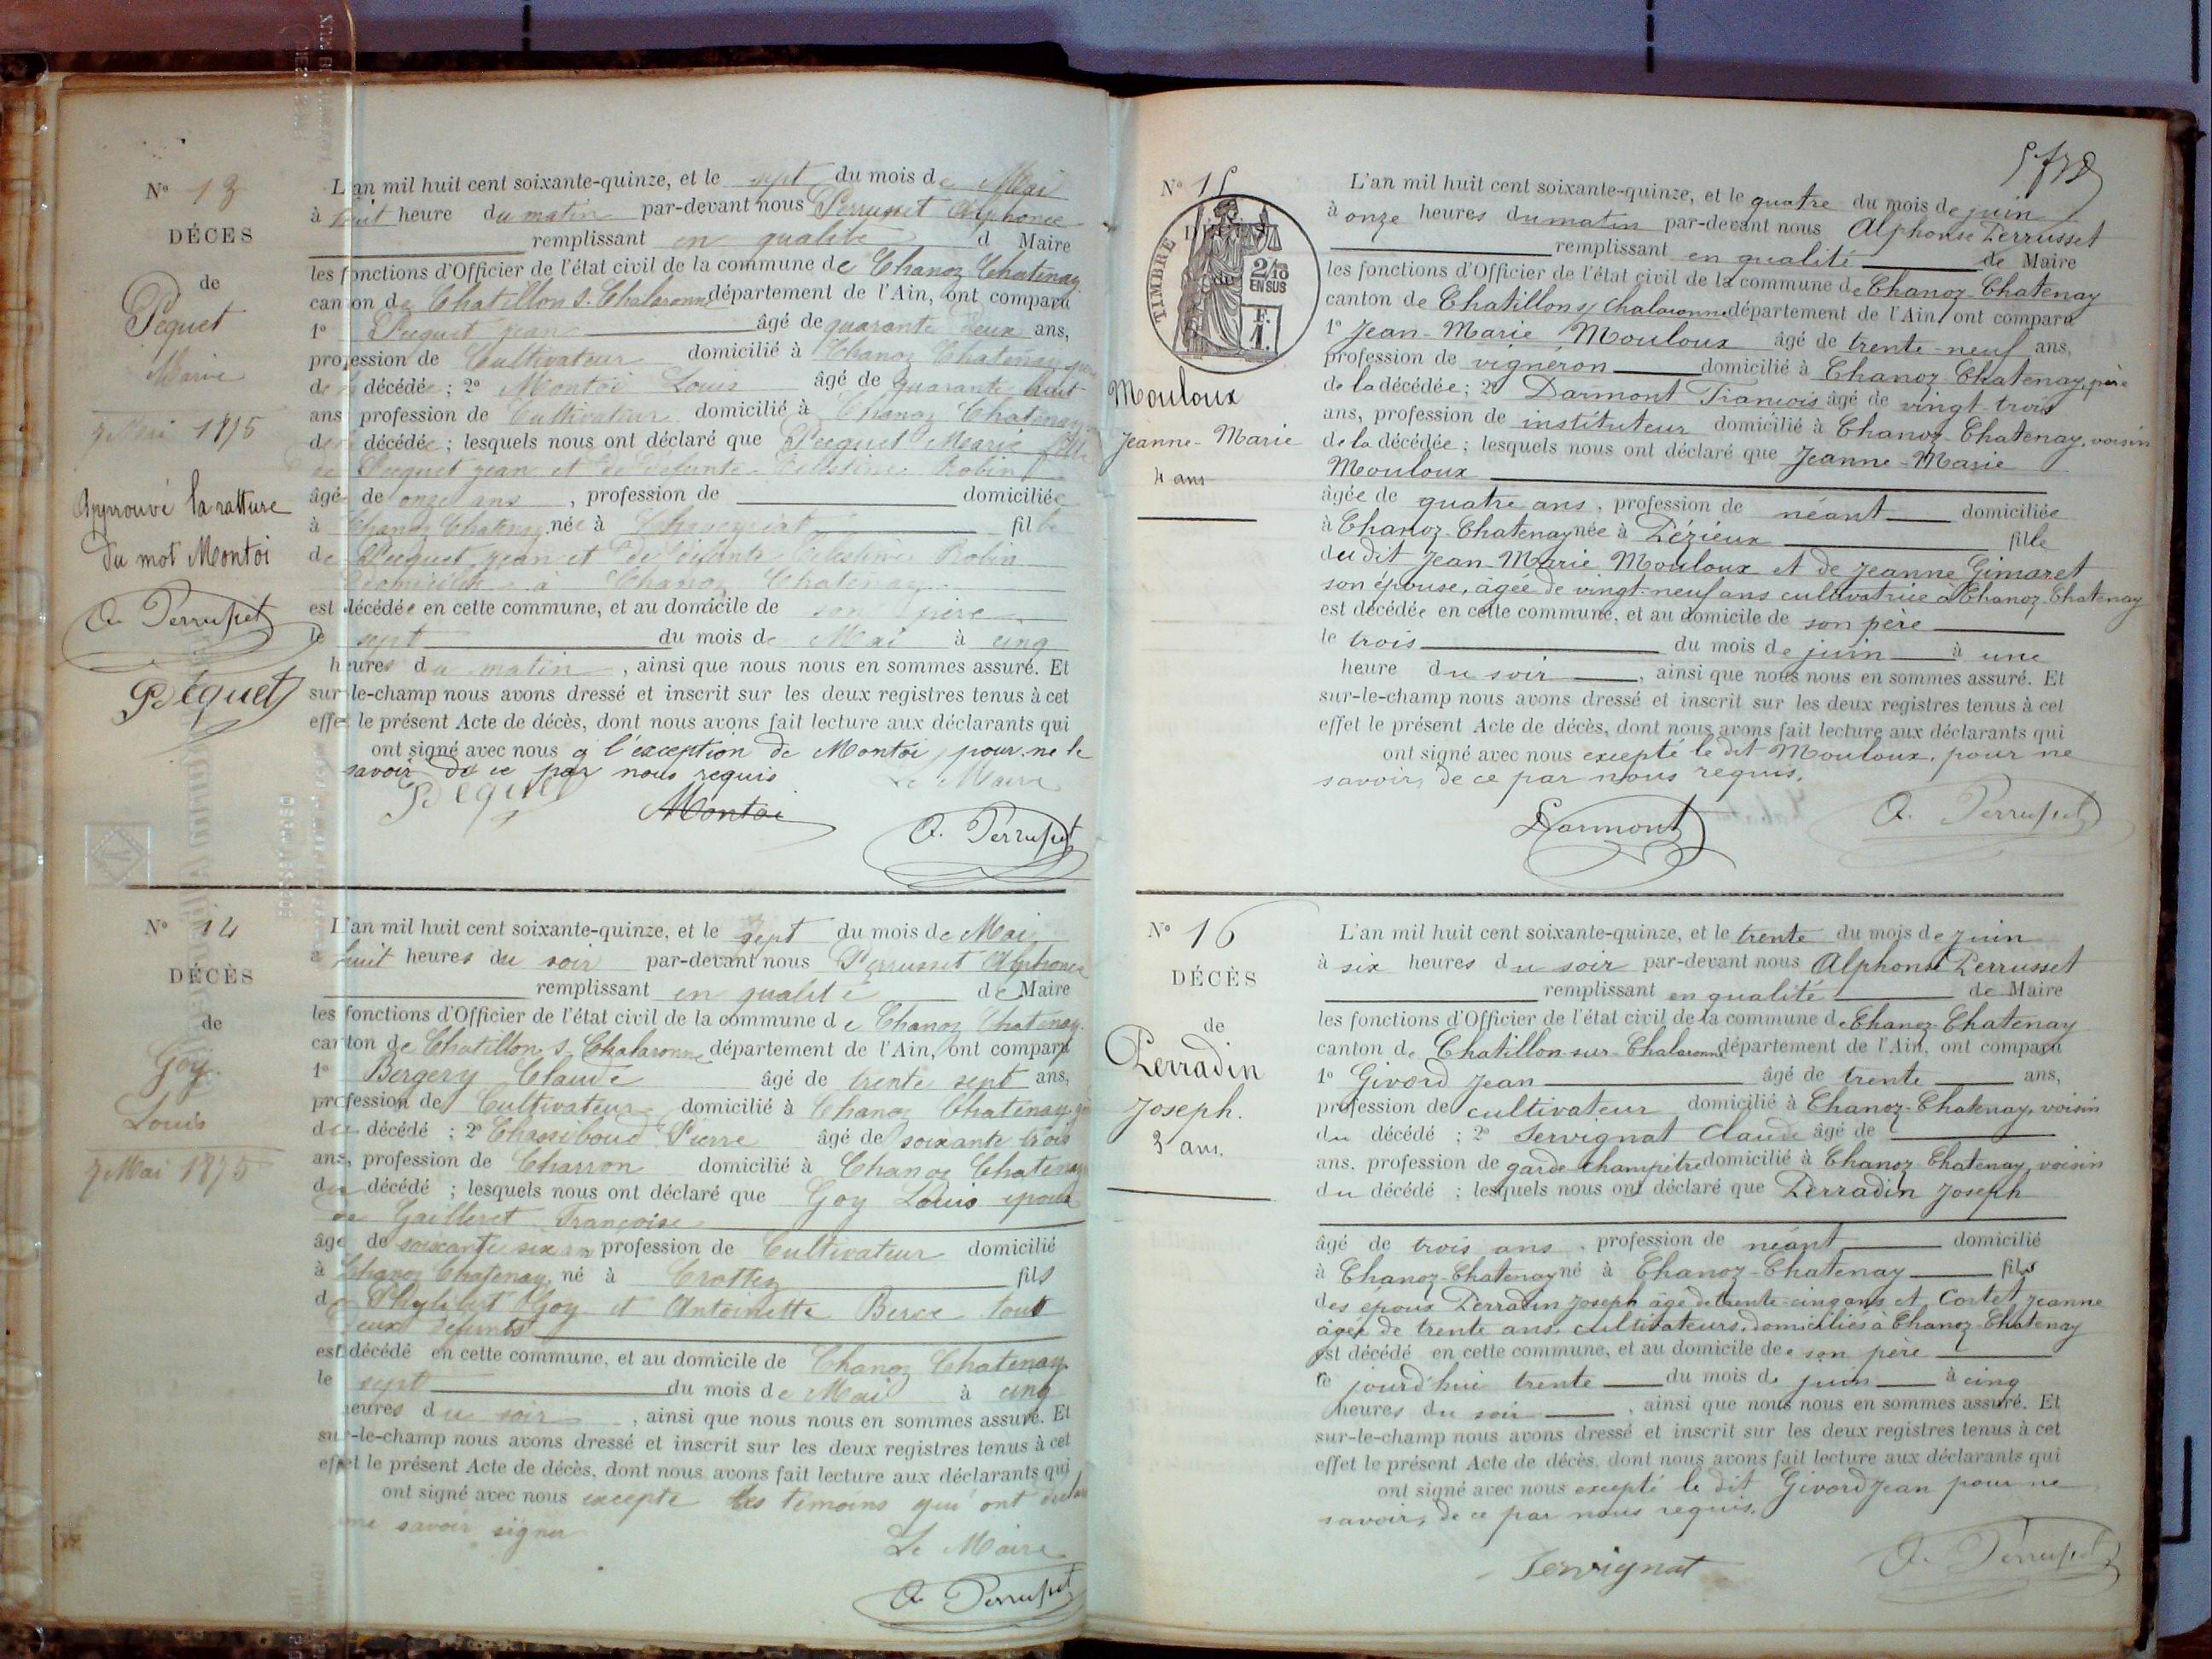 N° 13
DÉCES
de
Pequet
Marie
7 Mai 1875
Approuvé la ratture
du mot Montoi
A. Perrusset
Pequet
L'an mil huit cent soixante-quinze, et le sept du mois de Mai
à huit heure du matin par-devant nous Perrusset Alphonce
remplissant en qualité d Maire
les fonctions d'Officier de l'état civil de la commune de Chanoz Chatenay
canton de Chatillon s. Chalaronne département de l'Ain, ont comparu
1° Pecquet jean âgé de quarante deux ans,
profession de Cultivateur domicilié à Chanoz Chatenay père
de la décédée ; 2° Montoi Louis âgé de quarante huit
ans profession de Cultivateur domicilié à Chanoz Chatenay
de la décédée ; lesquels nous ont déclaré que Pecquet Marie fille
de Pecquet jean et de défunte Célestine Robin
âgé de onze ans , profession de domiciliée
à Chanoz Chatenay née à Chaveyriat fille
de Pecquet jean et de défunte Célestine Robin
domiciliés à Chanoz Chatenay
est décédée en cette commune, et au domicile de son père
le sept du mois de Mai à cinq
heures du matin , ainsi que nous nous en sommes assuré. Et
sur-le-champ nous avons dressé et inscrit sur les deux registres tenus à cet
effet le présent Acte de décès, dont nous avons fait lecture aux déclarants qui
ont signé avec nous à l'exception de Montoi, pour ne le
savoir de ce par nous requis
Le Maire
Pequet Montoi
A. Perrusset
N° 14
DÉCÈS
de
Goy
Louis
7 Mai 1875
L'an mil huit cent soixante-quinze, et le sept du mois de Mai
à huit heures du soir par-devant nous Perrusset Alphonce
remplissant en qualité de Maire
les fonctions d'Officier de l'état civil de la commune de Chanoz Chatenay
canton de Chatillon s. Chalaronne département de l'Ain, ont comparu
1° Bergery Claude âgé de trente sept ans,
profession de Cultivateur domicilié à Chanoz Chatenay
du décédé ; 2° Chassiboud Pierre âgé de soixante trois
ans, profession de Charron domicilié à Chanoz Chatenay
du décédé ; lesquels nous ont déclaré que Goy Louis époux
de Gailleret Françoise
âgé de soixante six an profession de Cultivateur domicilié
à Chanoz Chatenay né à Crottez fils
de Phylibert Goy et Antoinette Berce tout
deux défunts
est décédé en cette commune, et au domicile de Chanoz Chatenay
le sept du mois de Mai à cinq
heures du soir , ainsi que nous nous en sommes assuré. Et
sur-le-champ nous avons dressé et inscrit sur les deux registres tenus à cet
effet le présent Acte de décès, dont nous avons fait lecture aux déclarants qui
ont signé avec nous excepté les témoins qui ont
ne savoir signer
Le Maire
A. Perrusset
N° 15
TIMBRE
2/10
EN SUS
F.
1.
Mouloux
Jeanne-Marie
4 ans
L'an mil huit cent soixante-quinze, et le quatre du mois de juin
à onze heures du matin par-devant nous Alphonse Perrusset
remplissant en qualité de Maire
les fonctions d'Officier de l'état civil de la commune de Chanoz-Chatenay
canton de Chatillon s/ Chalaronne département de l'Ain, ont comparu
1° Jean-Marie Mouloux âgé de trente-neuf ans,
profession de vigneron domicilié à Chanoz-Chatenay, père
de la décédée ; 2° Darmont François âgé de vingt-trois
ans, profession de instituteur domicilié à Chanoz-Chatenay, voisin
de la décédée ; lesquels nous ont déclaré que Jeanne-Marie
Mouloux
âgée de quatre ans, profession de néant domiciliée
à Chanoz-Chatenay née à Pézieux fille
du dit Jean-Marie Mouloux et de Jeanne Gimaret
son épouse, âgée de vingt-neuf ans cultivatrice à Chanoz-Chatenay
est décédée en cette commune, et au domicile de son père
le trois du mois de juin à une
heure du soir , ainsi que nous nous en sommes assuré. Et
sur-le-champ nous avons dressé et inscrit sur les deux registres tenus à cet
effet le présent Acte de décès, dont nous avons fait lecture aux déclarants qui
ont signé avec nous excepté le dit Mouloux, pour ne
savoir, de ce par nous requis.
Darmont A. Perrusset
N° 16
DÉCÈS
de
Perradin
Joseph.
3 ans.
L'an mil huit cent soixante-quinze, et le trente du mois de juin
à six heures du soir par-devant nous Alphonse Perrusset
remplissant en qualité de Maire
les fonctions d'Officier de l'état civil de la commune de Chanoz-Chatenay
canton de Chatillon-sur-Chalaronne département de l'Ain, ont comparu
1° Givord Jean âgé de trente ans,
profession de cultivateur domicilié à Chanoz-Chatenay, voisin
du décédé ; 2° Servignat Claude âgé de
ans, profession de garde champêtre domicilié à Chanoz-Chatenay, voisin
du décédé ; lesquels nous ont déclaré que Perradin Joseph
âgé de trois ans, profession de néant domicilié
à Chanoz-Chatenay né à Chanoz-Chatenay fils
des époux Perradin Joseph âgé de trente-cinq ans et Cortet Jeanne
âgée de trente ans, cultivateurs, domiciliés à Chanoz-Chatenay
est décédé en cette commune, et au domicile de son père
le jourd'hui trente du mois de juin à cinq
heures du soir , ainsi que nous nous en sommes assuré. Et
sur-le-champ nous avons dressé et inscrit sur les deux registres tenus à cet
effet le présent Acte de décès, dont nous avons fait lecture aux déclarants qui
ont signé avec nous excepté le dit Givord Jean pour ne
savoir, de ce par nous requis.
Servignat A. Perrusset